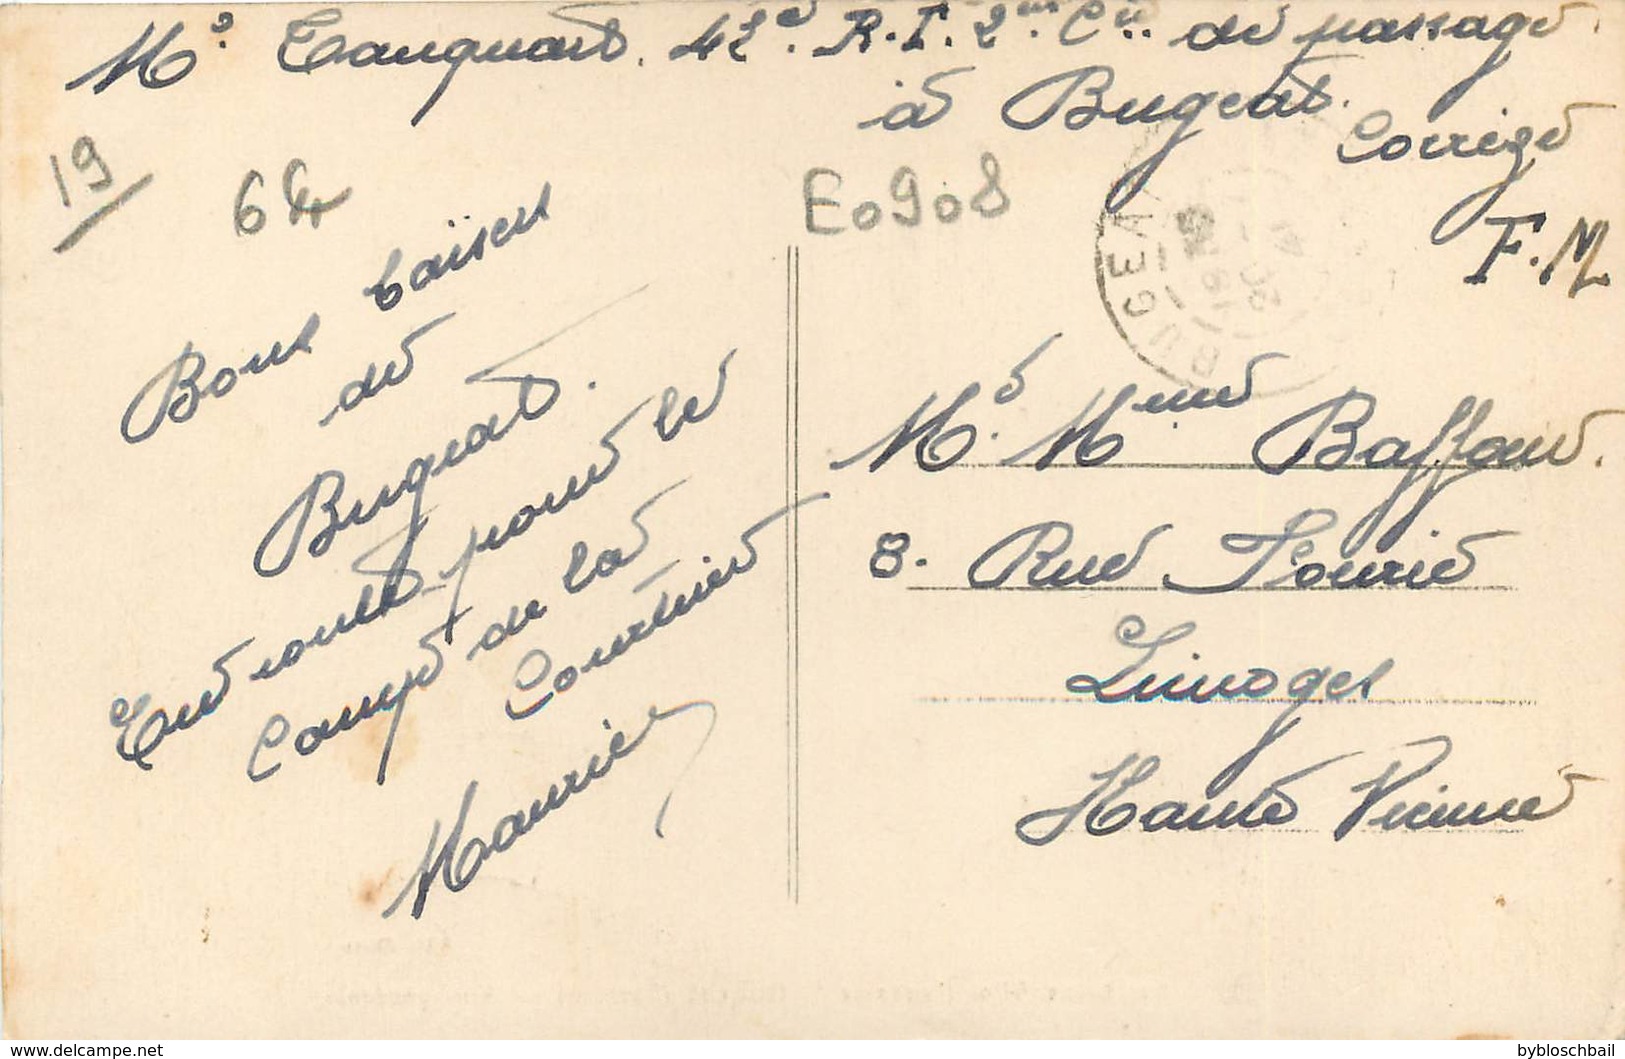 Mr. Tanguart. 42e. R.I. 2me. Cie. de passage.
à Bugeat.
Corrèze
F.M
19
64
E0908
BUGEA
Bons baisers
de
Bugeat.
En route pour le
Camp de la
Courtine
Maurice
Mr. Mme Baffou.
8. Rue Fourie
Limoges
Haute Vienne
www.delcampe.net
bybloschbail